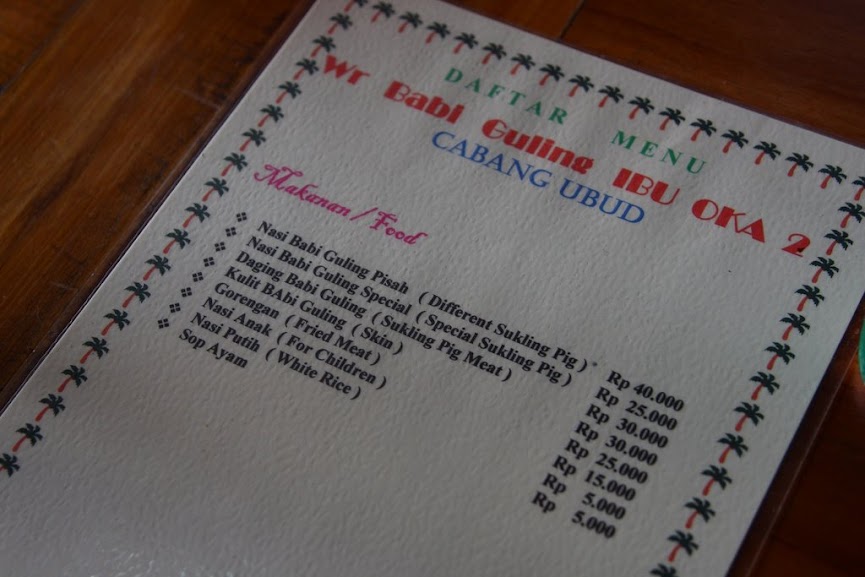 DAFTAR MENU
Wr Babi Guling IBU OKA 2
CABANG UBUD
Makanan / Food
❖ Nasi Babi Guling Pisah ( Different Sukling Pig ) Rp 40.000
❖ Nasi Babi Guling Special ( Special Sukling Pig ) Rp 25.000
❖ Daging Babi Guling ( Sukling Pig Meat ) Rp 30.000
❖ Kulit BAbi Guling ( Skin ) Rp 30.000
❖ Gorengan ( Fried Meat ) Rp 25.000
❖ Nasi Anak ( For Children ) Rp 15.000
❖ Nasi Putih ( White Rice ) Rp 5.000
❖ Sop Ayam Rp 5.000